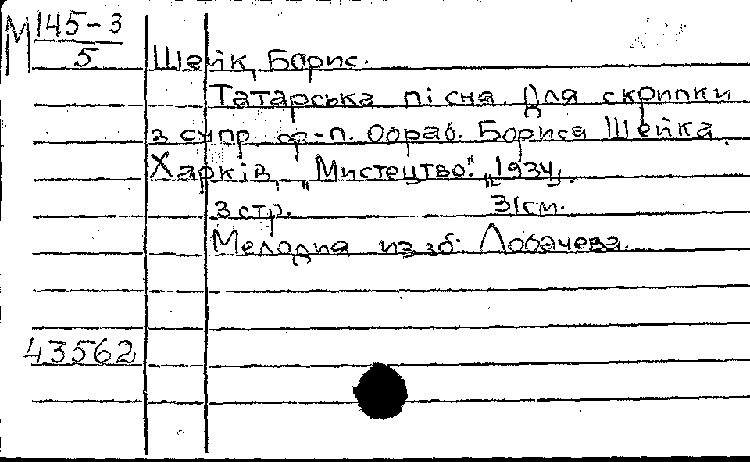 М 145-3
5
Шейк, Борис.
Татарська пісня для скрипки
з супр. ф-п. Обраб. Бориса Шейка.
Харків, „Мистецтво". „1934„.
3 стр. 31см.
Мелодия из зб. Лобачева.
43562